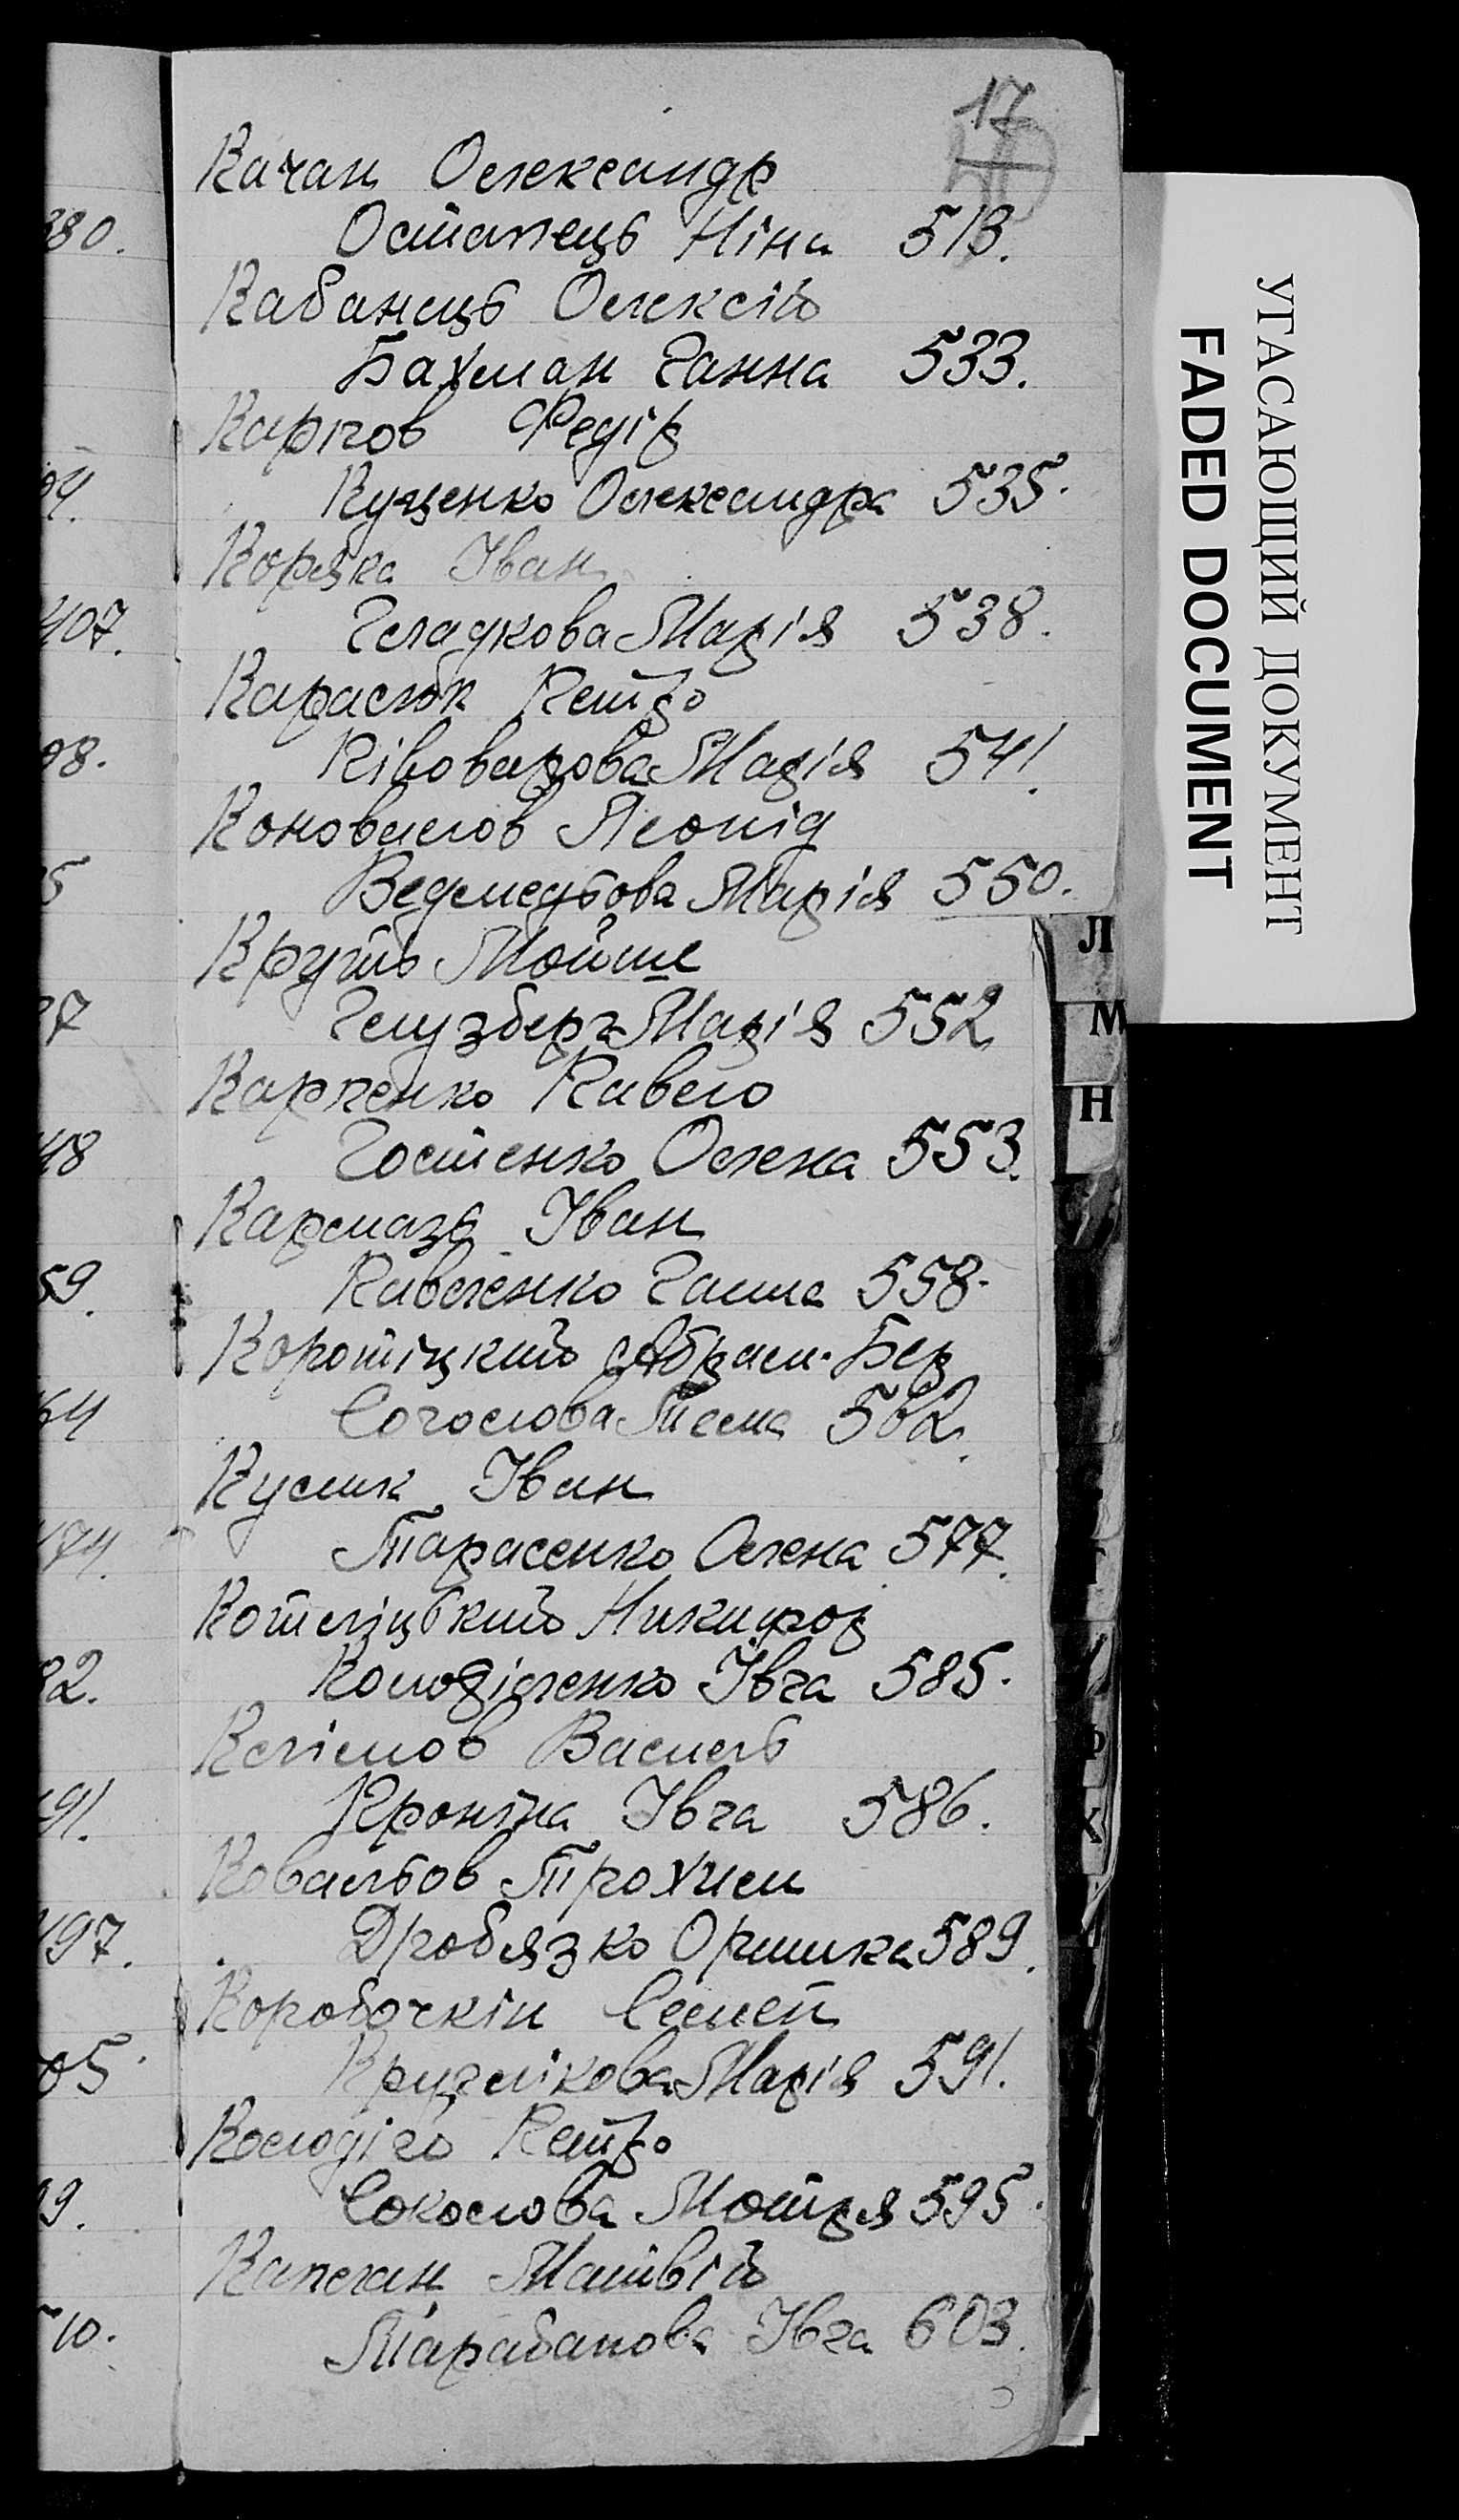 17
Качан Олександр
Остапець Ніна 513.
Кабанець Олексій
Бахман Ганна 533.
Карпов Федір
Куценко Олександра 535.
Коряка Іван
Гладкова Марія 538.
Карасюк Петро
Півоварова Марія 541.
Коновалов Леонід
Ведмедьова Марія 550.
Круть Мойше
Глузберг Марія 552
Карпенко Павело
Гостенко Олена 553.
Кармазь Іван
Павленко Ганна 558.
Коротіцкий Абрам-Бер
Соголова Тема 562.
Кулик Іван
Тарасенко Олена 577.
Котеліцький Никифор
Колоділенко Івга 585.
Клімов Василь
Кроніна Івга 586.
Ковальов Трохим
Дробязко Оришка 589.
Коробочкін Семен
Марія 591.
Колодій Петро
Соколова Мотря 595.
Каплан Матвій
Тарабанова Івга 603.
380.
04.
407.
98.
5
27
48
59.
64
174.
82.
491.
497.
05.
09.
510.
Л
М
Н
Ф
Х
УГАСАЮЩИЙ ДОКУМЕНТ
FADED DOCUMENT